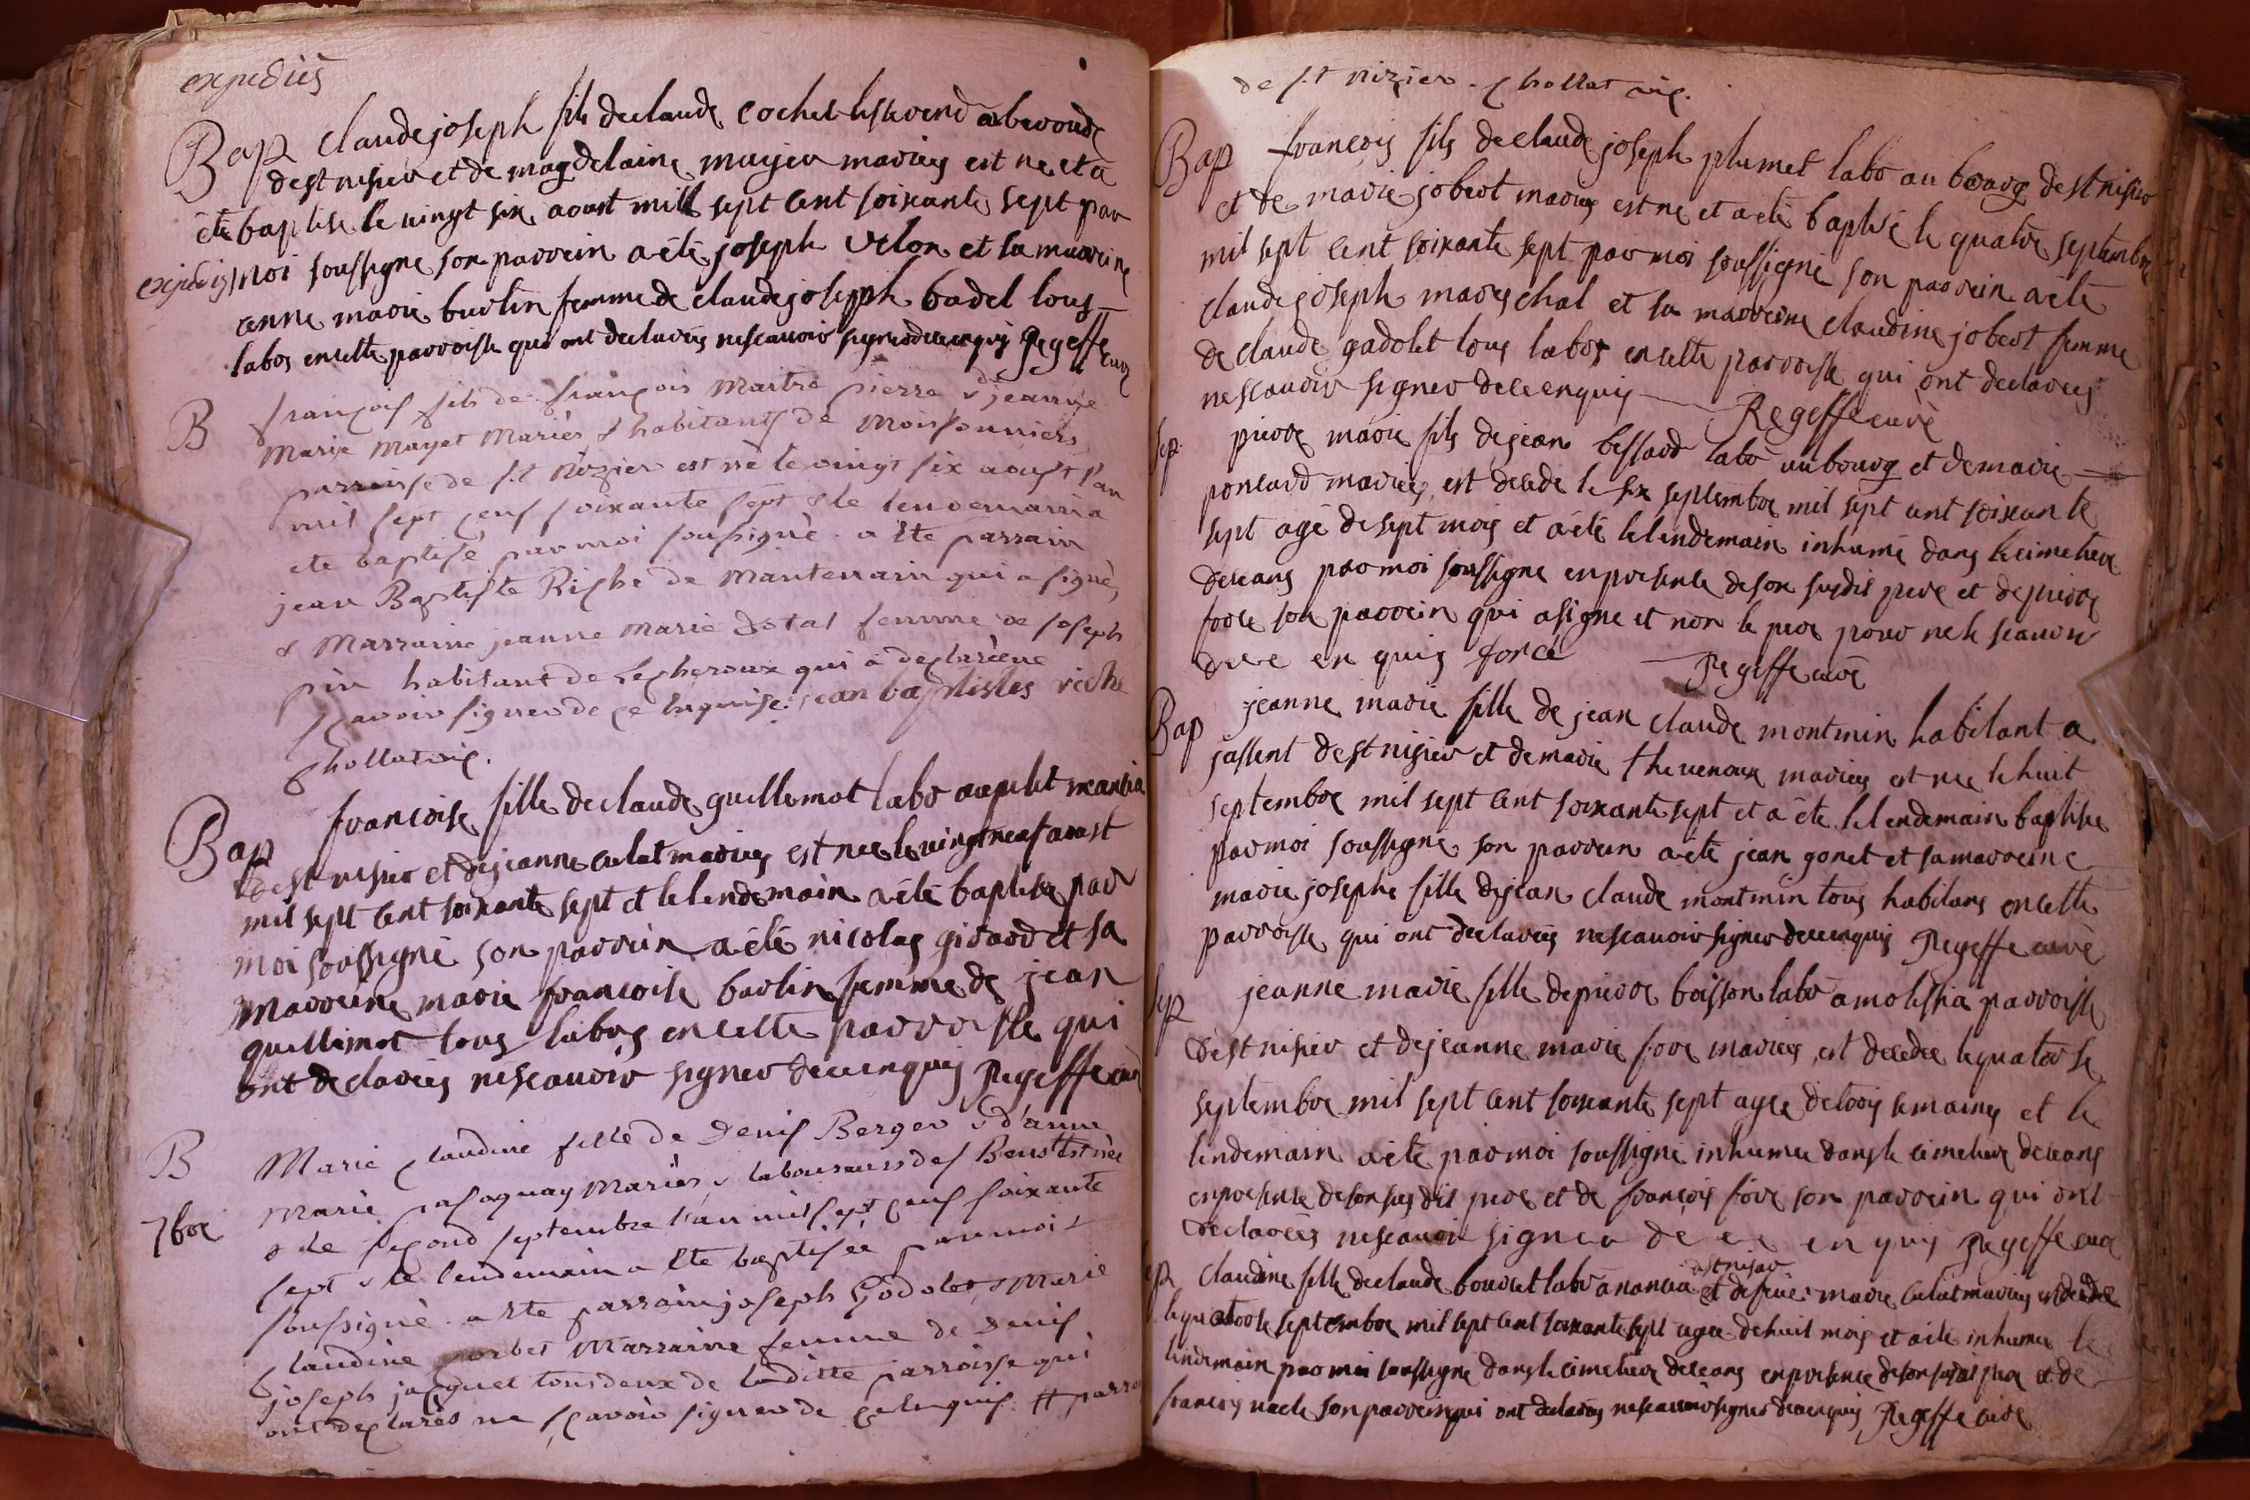 expediés
Bap claude joseph fils de claude cochet tisserend
de st nisier et de magdelaine mayer mariés est ne et a
été baptise le vingt six aoust mill sept cent soixante sept par
expediés moi soussigne son parrein a été joseph velon et sa marreine
anne marie burlin femme de claude joseph badel tous
labos en cette parroisse qui ont declarés ne scauoir signer de ce enquis Regeffe curé
B françois fils de françois Maitre pierre & jeanne
Marie Mayet Mariés & habitants de Moissonniers
parroisse de s.t Nizier est né le vingt six aoust l'an
mil sept cent soixante sept & le lendemain a
ete baptisé par moi soussigné. a ête parrain
jean Baptiste Riche de Mantenain qui a signé
& Marraine jeanne Marie femme de joseph
habitant de qui a declarée ne
scavoir signer de ce enquise. jean baptistes riche
chollat vic.
Bap francoise fille de claude guillemot labo au petit
de st nisier et de jeanne culat mariés est nee le vingt neuf aoust
mil sept cent soixante sept et le lendemain a été baptisée par
moi soussigné son parrein a été nicolas girard et sa
marreine marie francoise barlin femme de jean
guillimot tous labos en cette parroisse qui
ont declarés ne scauoir signer de ce enquis Regeffe curé
B Marie claudine fille de Denis Berger & d'anne
Marie Mariés & laboureurs des née
7bre & le second septembre l'an mil sept cent soixante
sept & le lendemain a ête baptisée par moi
soussigné. a ête parrain joseph Godolet & Marie
claudine Marraine femme de Denis
joseph jacquet tous deux de laditte parroisse qui
ont declarés ne sçavoir signer de ce enquis. #
de s.t nizier. chollat vic.
Bap francois fils de claude joseph plumet labo au bourg de st nisier
et de marie jobert mariés est ne et a été baptisé le quatre septembre
mil sept cent soixante sept par moi soussigné son parrein a été
claude joseph mareschal et sa marreine claudine jobert femme
de claude gadolet tous labos en cette parroisse qui ont declarés
ne scauoir signer de ce enquis Regeffe curé
sep. pierre marie fils de jean bessard labo au bourg et de marie
poncard mariés, est decede le six septembre mil sept cent soixante
sept agé de sept mois et a été le lendemain inhumé dans le cimetiere
de ceans par moi soussigne en presence de son susdit pere et de pierre
force son parrein qui a signe et non le pere pour ne le scauoir
de ce enquis force Regeffe curé
Bap jeanne marie fille de jean claude montmin habitant a
jassent de st nisier et de marie thevenoux mariés est nee le huit
septembre mil sept cent soixante sept et a été le lendemain baptisée
par moi soussigné son parrein a été jean gonet et sa marreine
marie josephe fille de jean claude montmin tous habitans en cette
parroisse qui ont declarés ne scauoir signer de ce enquis Regeffe curé
sep jeanne marie fille de pierre boisson labo a molissia parroisse
de st nisier et de jeanne marie fore mariés, est decedee le quatorse
septembre mil sept cent soixante sept agee de trois semaines et le
lendemain a été par moi soussigné inhumee dans le cimetiere de ceans
en presence de son susdit pere et de françois fore son parrein qui ont
declarés ne scauoir signer de ce enquis Regeffe curé
sep claudine fille de claude bouvret labo a nancia st nisier et de feue marie culat mariés est decedee
le quatorse septembre mil sept cent soixante sept agee de huit mois et a été inhumee le
lendemain par moi soussigne dans le cimetiere de ceans en presence de son susdit pere et de
francois son parrein qui ont declarés ne scauoir signer de ce enquis Regeffe curé